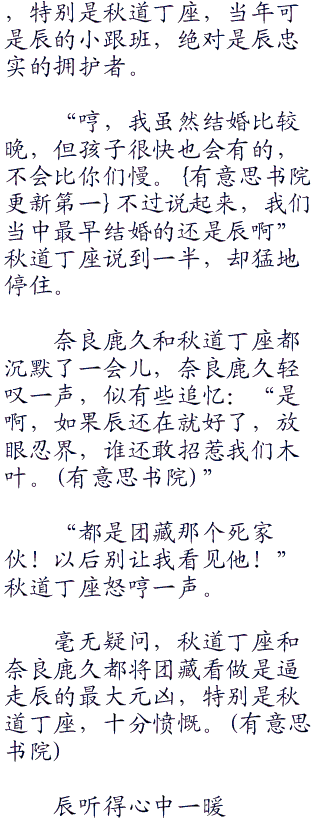 ，特别是秋道丁座，当年可
是辰的小跟班，绝对是辰忠
实的拥护者。
“哼，我虽然结婚比较
晚，但孩子很快也会有的，
不会比你们慢。{有意思书院
更新第一}不过说起来，我们
当中最早结婚的还是辰啊”
秋道丁座说到一半，却猛地
停住。
奈良鹿久和秋道丁座都
沉默了一会儿，奈良鹿久轻
叹一声，似有些追忆：“是
啊，如果辰还在就好了，放
眼忍界，谁还敢招惹我们木
叶。(有意思书院)”
“都是团藏那个死家
伙！以后别让我看见他！”
秋道丁座怒哼一声。
毫无疑问，秋道丁座和
奈良鹿久都将团藏看做是逼
走辰的最大元凶，特别是秋
道丁座，十分愤慨。(有意思
书院)
辰听得心中一暖